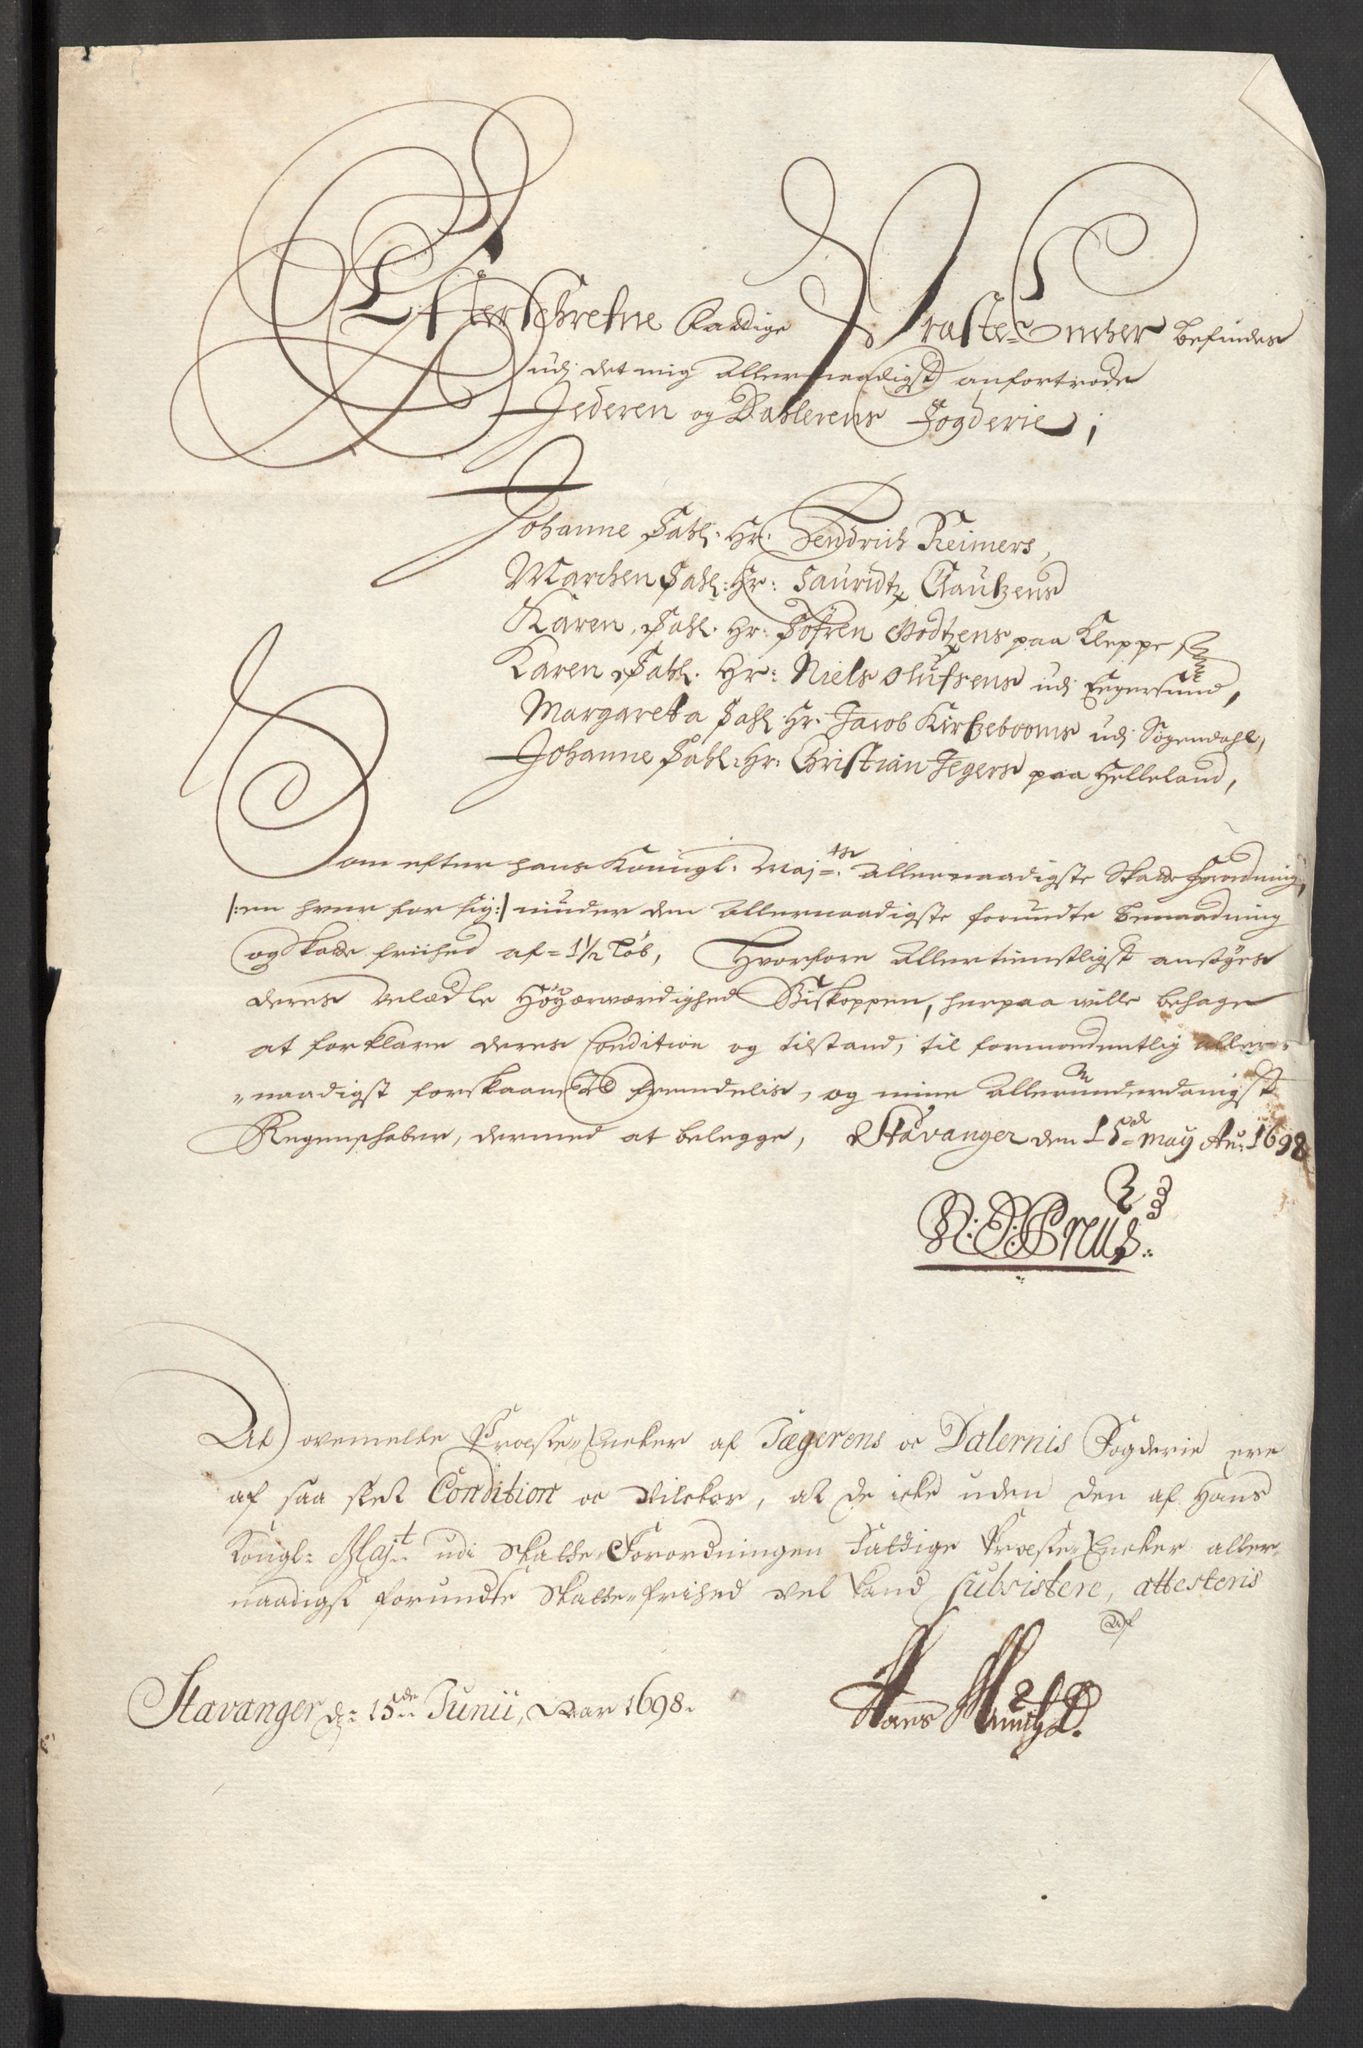 Efterschrefne Fattige Præste-Encher befindes
udj det mig allernaadigst anfortrode
Jederen og Dahlerens Fogderie;
Johanne Sahl. Hr. Hendrich Reimers,
Marchen Sahl: Hr: Lauridtz Clautzens
Karen, Sahl. Hr: Söfren Godtzens paa Kleppe
Karen Sahl. Hr: Niels Olufsens udj Egersund,
Margareta Sahl. Hr. Jacob Kirtzebooms udj Sogendahl,
Johanne Sahl: Hr: Christian Jegers paa Helleland,
Som efter hans Konngl. Maj:ts allernaadigste Skatte forordning,
/:en hver for sig:/ niuder den allernaadigste forundte benaadning
og Skatte friihed af = 1½ Løb, Hvorfore allertienstligst ansöges
deres Velædle Höyærværdighed Biskoppen, herpaa wille behage
at forklare deres Condition og tilstand, til formodentlig aller-
naadigst forskaansel fremdelis, og mine allerunderdanigst
Regenschaber, dermed at belegge, Stavanger den 15de May Ao: 1698
At ovenmelte Præste-Encker af Jægerens oc Dalernis Fogderie ere
af saa slet Condition oc Vilckor, at de icke uden den af Hans
Kongl: Maj:t udi Skatte-Forordningen Fattige Præste-Encker aller-
naadigst forundte Skatte-frihed vel kand subsistere, attesteris
Af
Stavanger d: 15de Junii, Aar 1698.
Hans Munch